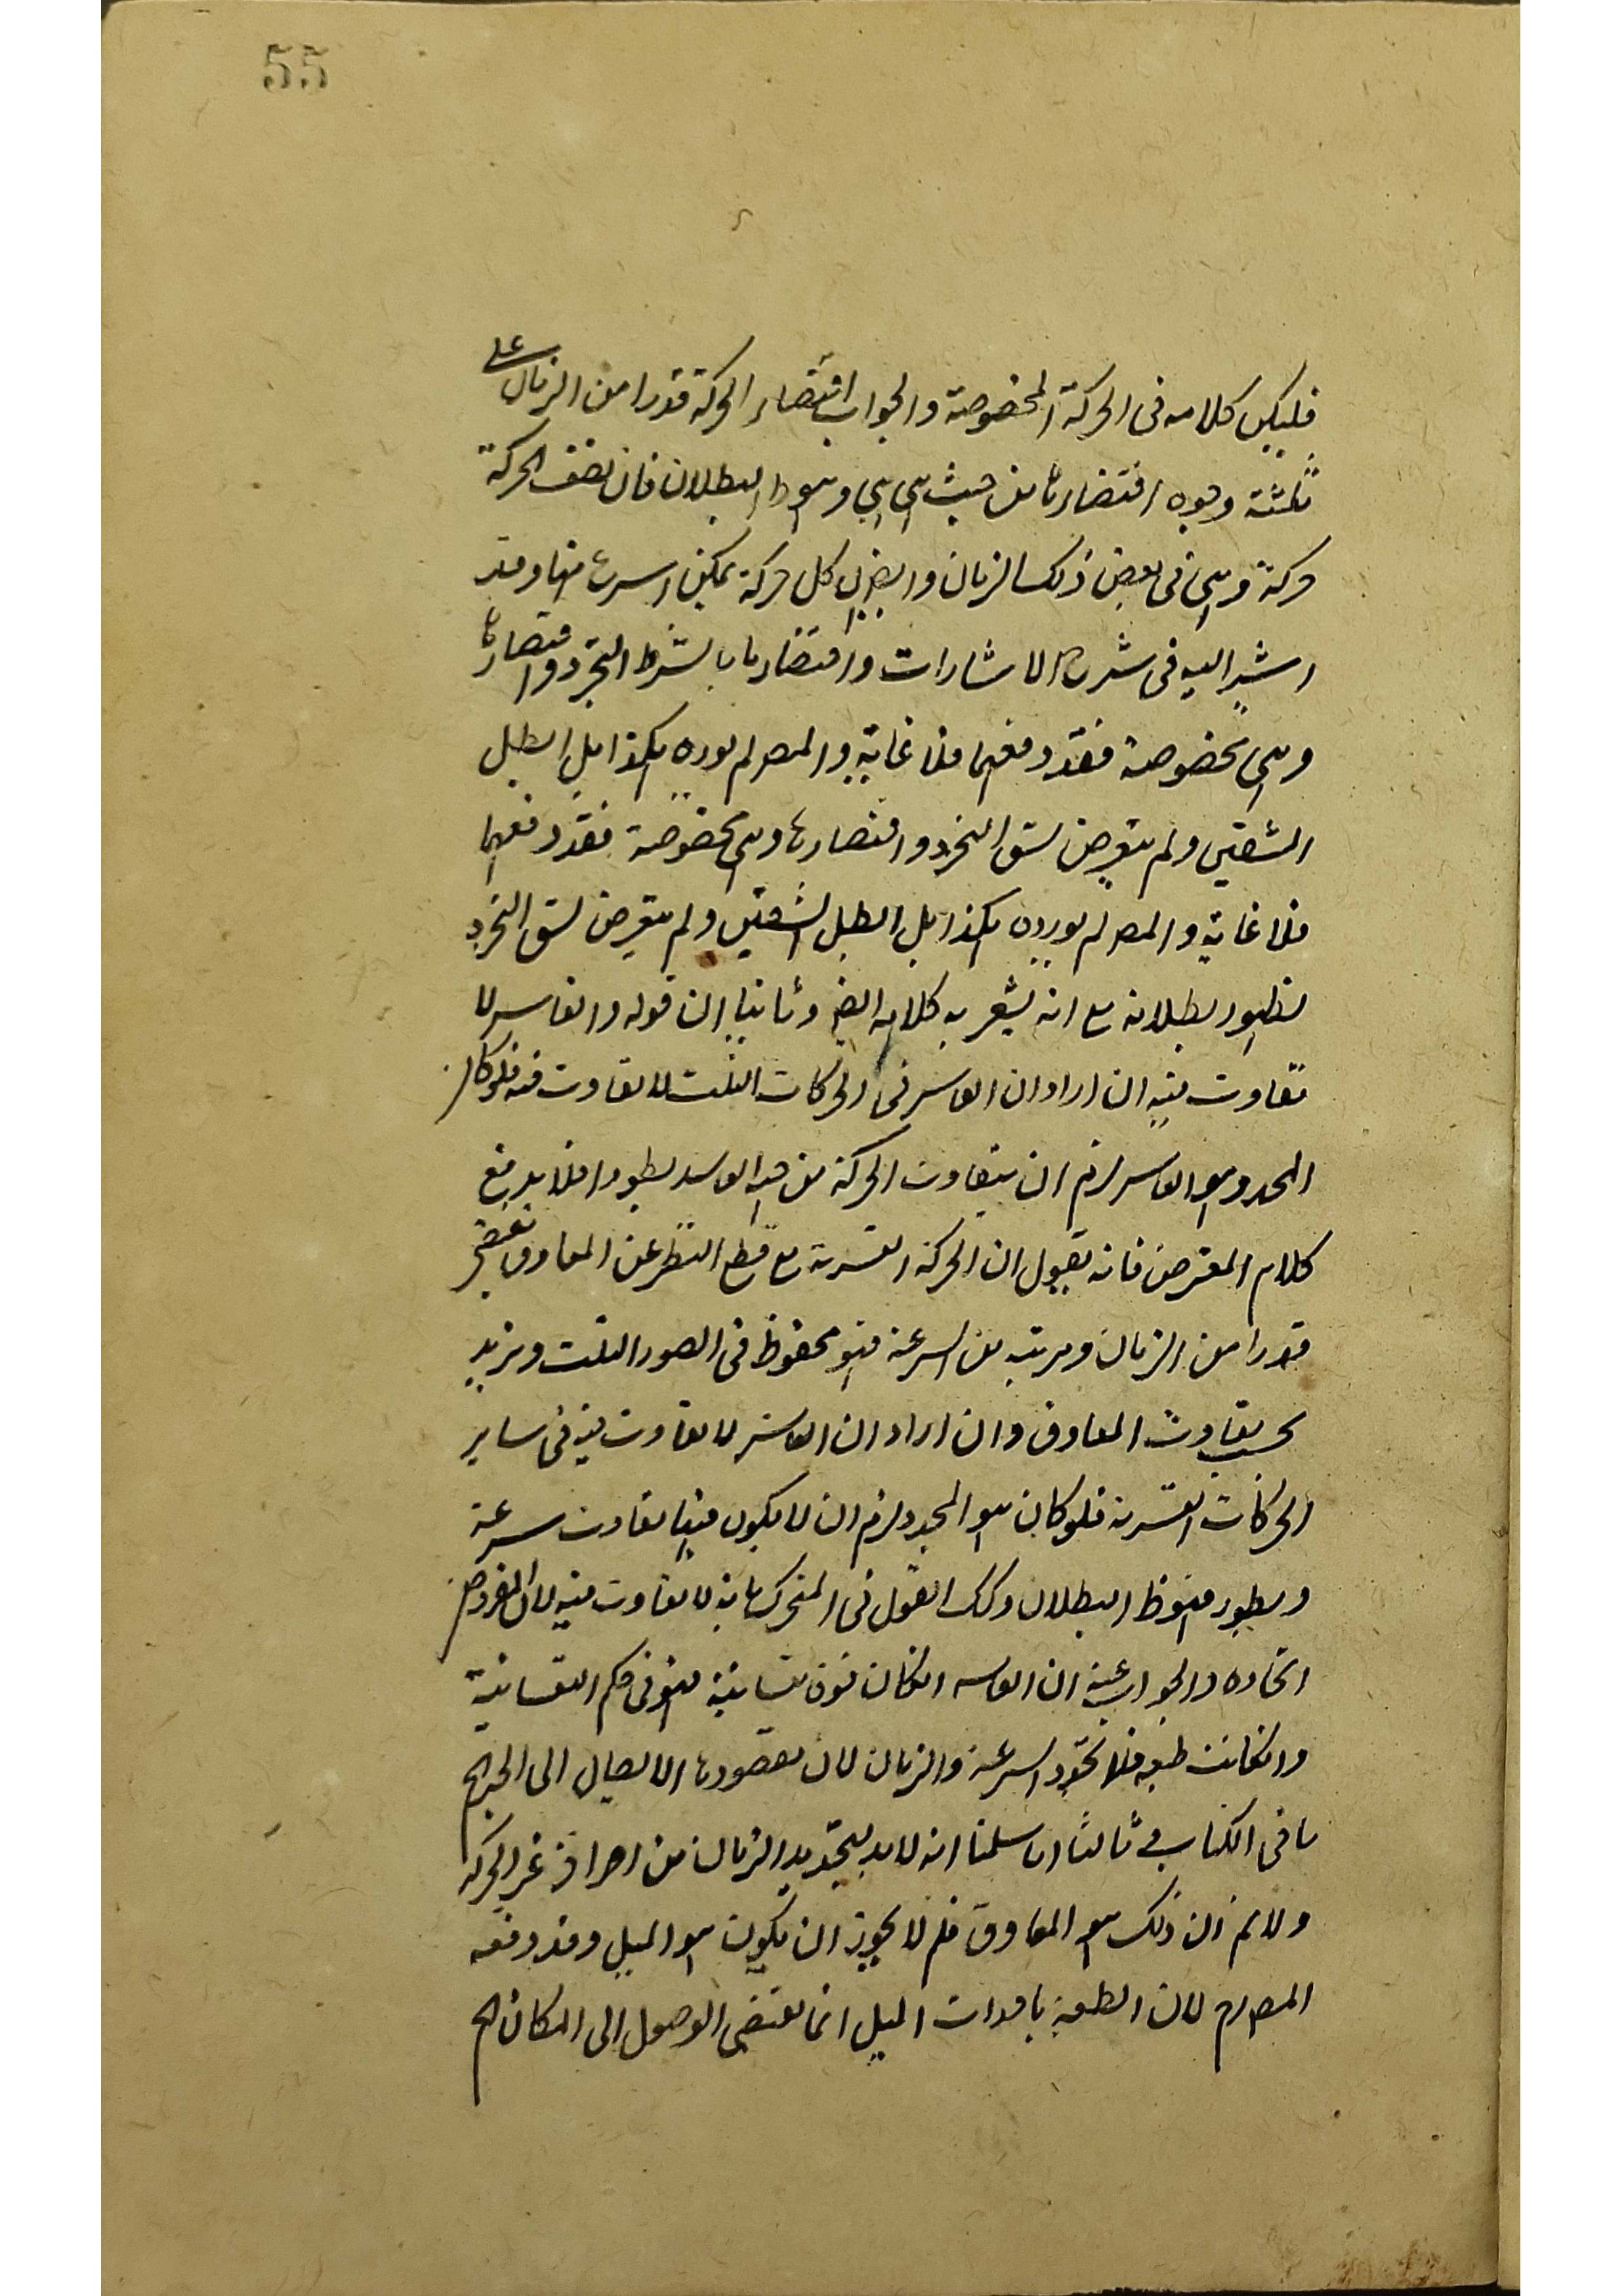 55
فليكن كلامه فى الحركة المخصوصة والجواب اقتضاء الحركة قدرا من الزمان على
ثلثة وجوه اقتضاءها من حيث هى هى وهو ظ البطلان فان نصف الحركة
حركة وهى فى بعض ذلك الزمان وايض كل حركة يمكن اسرع منها وقد
اشير اليه فى شرح الاشارات واقتضاءها بشرط التجرد واقتضاءها
وهى مخصوصة فقد دفعهما فلا غاية والمص لم يورده هكذا بل ابطل
الشقين ولم يتعرض لشق التجرد واقتضاءها وهى مخصوصة فقد دفعهما
فلا غاية والمص لم يورده هكذا بل ابطل الشقين ولم يتعرض لشق التجرد
لظهور بطلانه مع انه يشعر به كلامه ايض وثانيا ان قوله والقاسر لا
تفاوت فيه ان اراد ان القاسر فى الحركات الثلث لا تفاوت فيه فلو كان
المحدد هو القاسر لزم ان يتفاوت الحركة من جهة القاسر بطوءا فلا يدفع
كلام المعترض فانه يقول ان الحركة القسرية مع قطع النظر عن المعاوق تقتضى
قدرا من الزمان ومرتبة من السرعة فهو محفوظ فى الصور الثلث ويزيد
بحسب تفاوت المعاوق وان اراد ان القاسر لا تفاوت فيه فى ساير
الحركات القسرية فلو كان هو المحدد لزم ان لا يكون فيها تفاوت سرعة
وبطوء فهو ظ البطلان وكك القول فى المتحرك بانه لا تفاوت فيه لان المفروض
اتحاده والجواب عنه ان القاسر انكان قوة نفسانية فهو فى حكم النفسانية
وانكانت طبعية فلا تحدد السرعة والزمان لان مقصودها الايصال الى الحيز الخ
ما فى الكتاب وثالثا انا سلمنا انه لا بد لتحديد الزمان من امر اخر غير الحركة
ولا نم ان ذلك هو المعاوق فلم لا يجوز ان يكون هو الميل وقد دفعه
المص لان الطبيعة بادوات الميل انما تقتضى الوصول الى المكان الخ